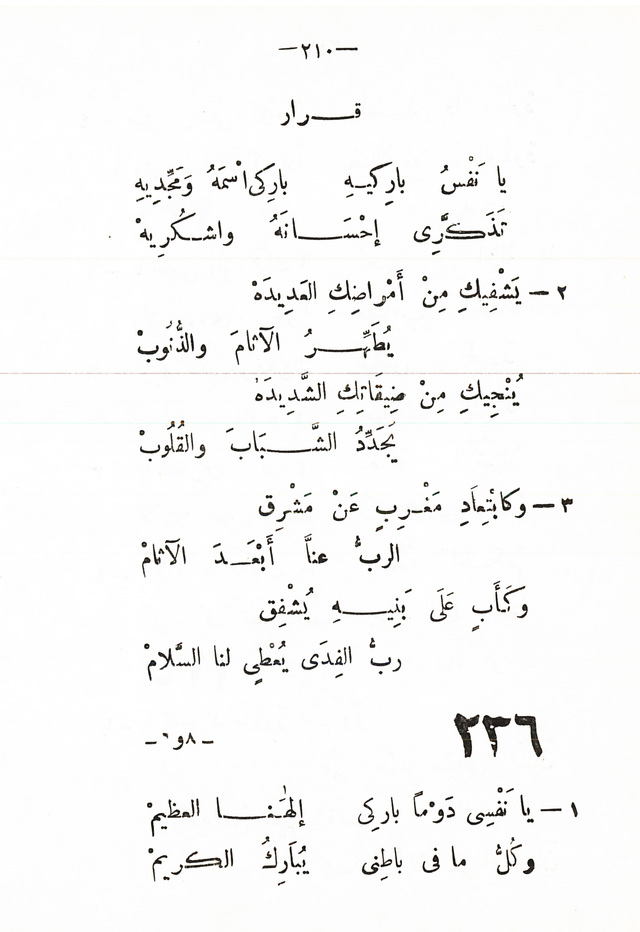 —٢١٠—
قـــرار
يا نَفْسُ باركيـهِ باركى اسْمَهُ وَمَجِّدِيهِ
تَذَكَّرِى إحْسَــانَهُ واشـكُرِيهْ
٢ — يَشْفِيكِ مِنْ أَمْراضِكِ العَدِيدَهْ
يُطَهِّــرُ الآثامَ والذُّنُوبْ
يُنْجِيكِ مِنْ ضِيقَاتِكِ الشَّدِيدَهْ
يُجَدِّدُ الشَّـــبَابَ والقُلُوبْ
٣ — وكابْتِعَادِ مَغْـرِبٍ عَنْ مَشْرِق
الربُّ عنَّا أَبْعَــدَ الآثامْ
وَكَأَبٍ عَلَى بَنِيـــهِ يُشْفِق
ربُّ الفِدَى يُعْطِي لنا السَّلامْ
٢٣٦
ــ ٨و٦ ــ
١ — يا نَفْسِى دَوْماً باركِى إلهَنــا العظيمْ
وكُلُّ ما فى باطِنِى يُبَارِكُ الكريمْ